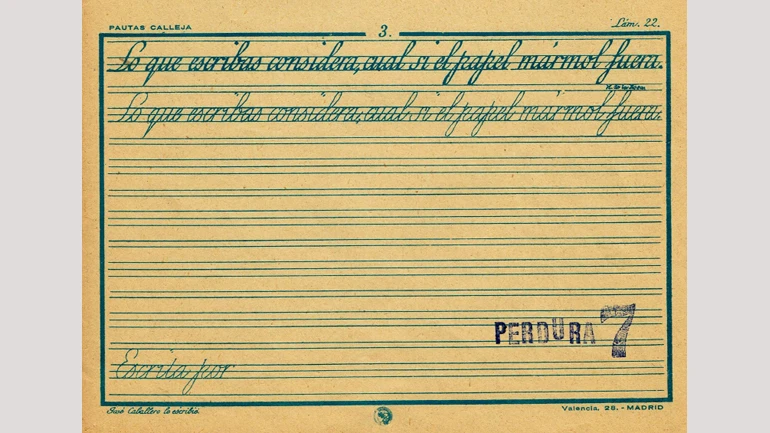 PAUTAS CALLEJA
3.
Lám. 22.
Lo que escribas considera, cual si el papel mármol fuera.
Lo que escribas considera, cual si el papel mármol fuera.
PERDURA 7
Escrita por
José Caballero lo escribió.
Valencia, 28. - MADRID